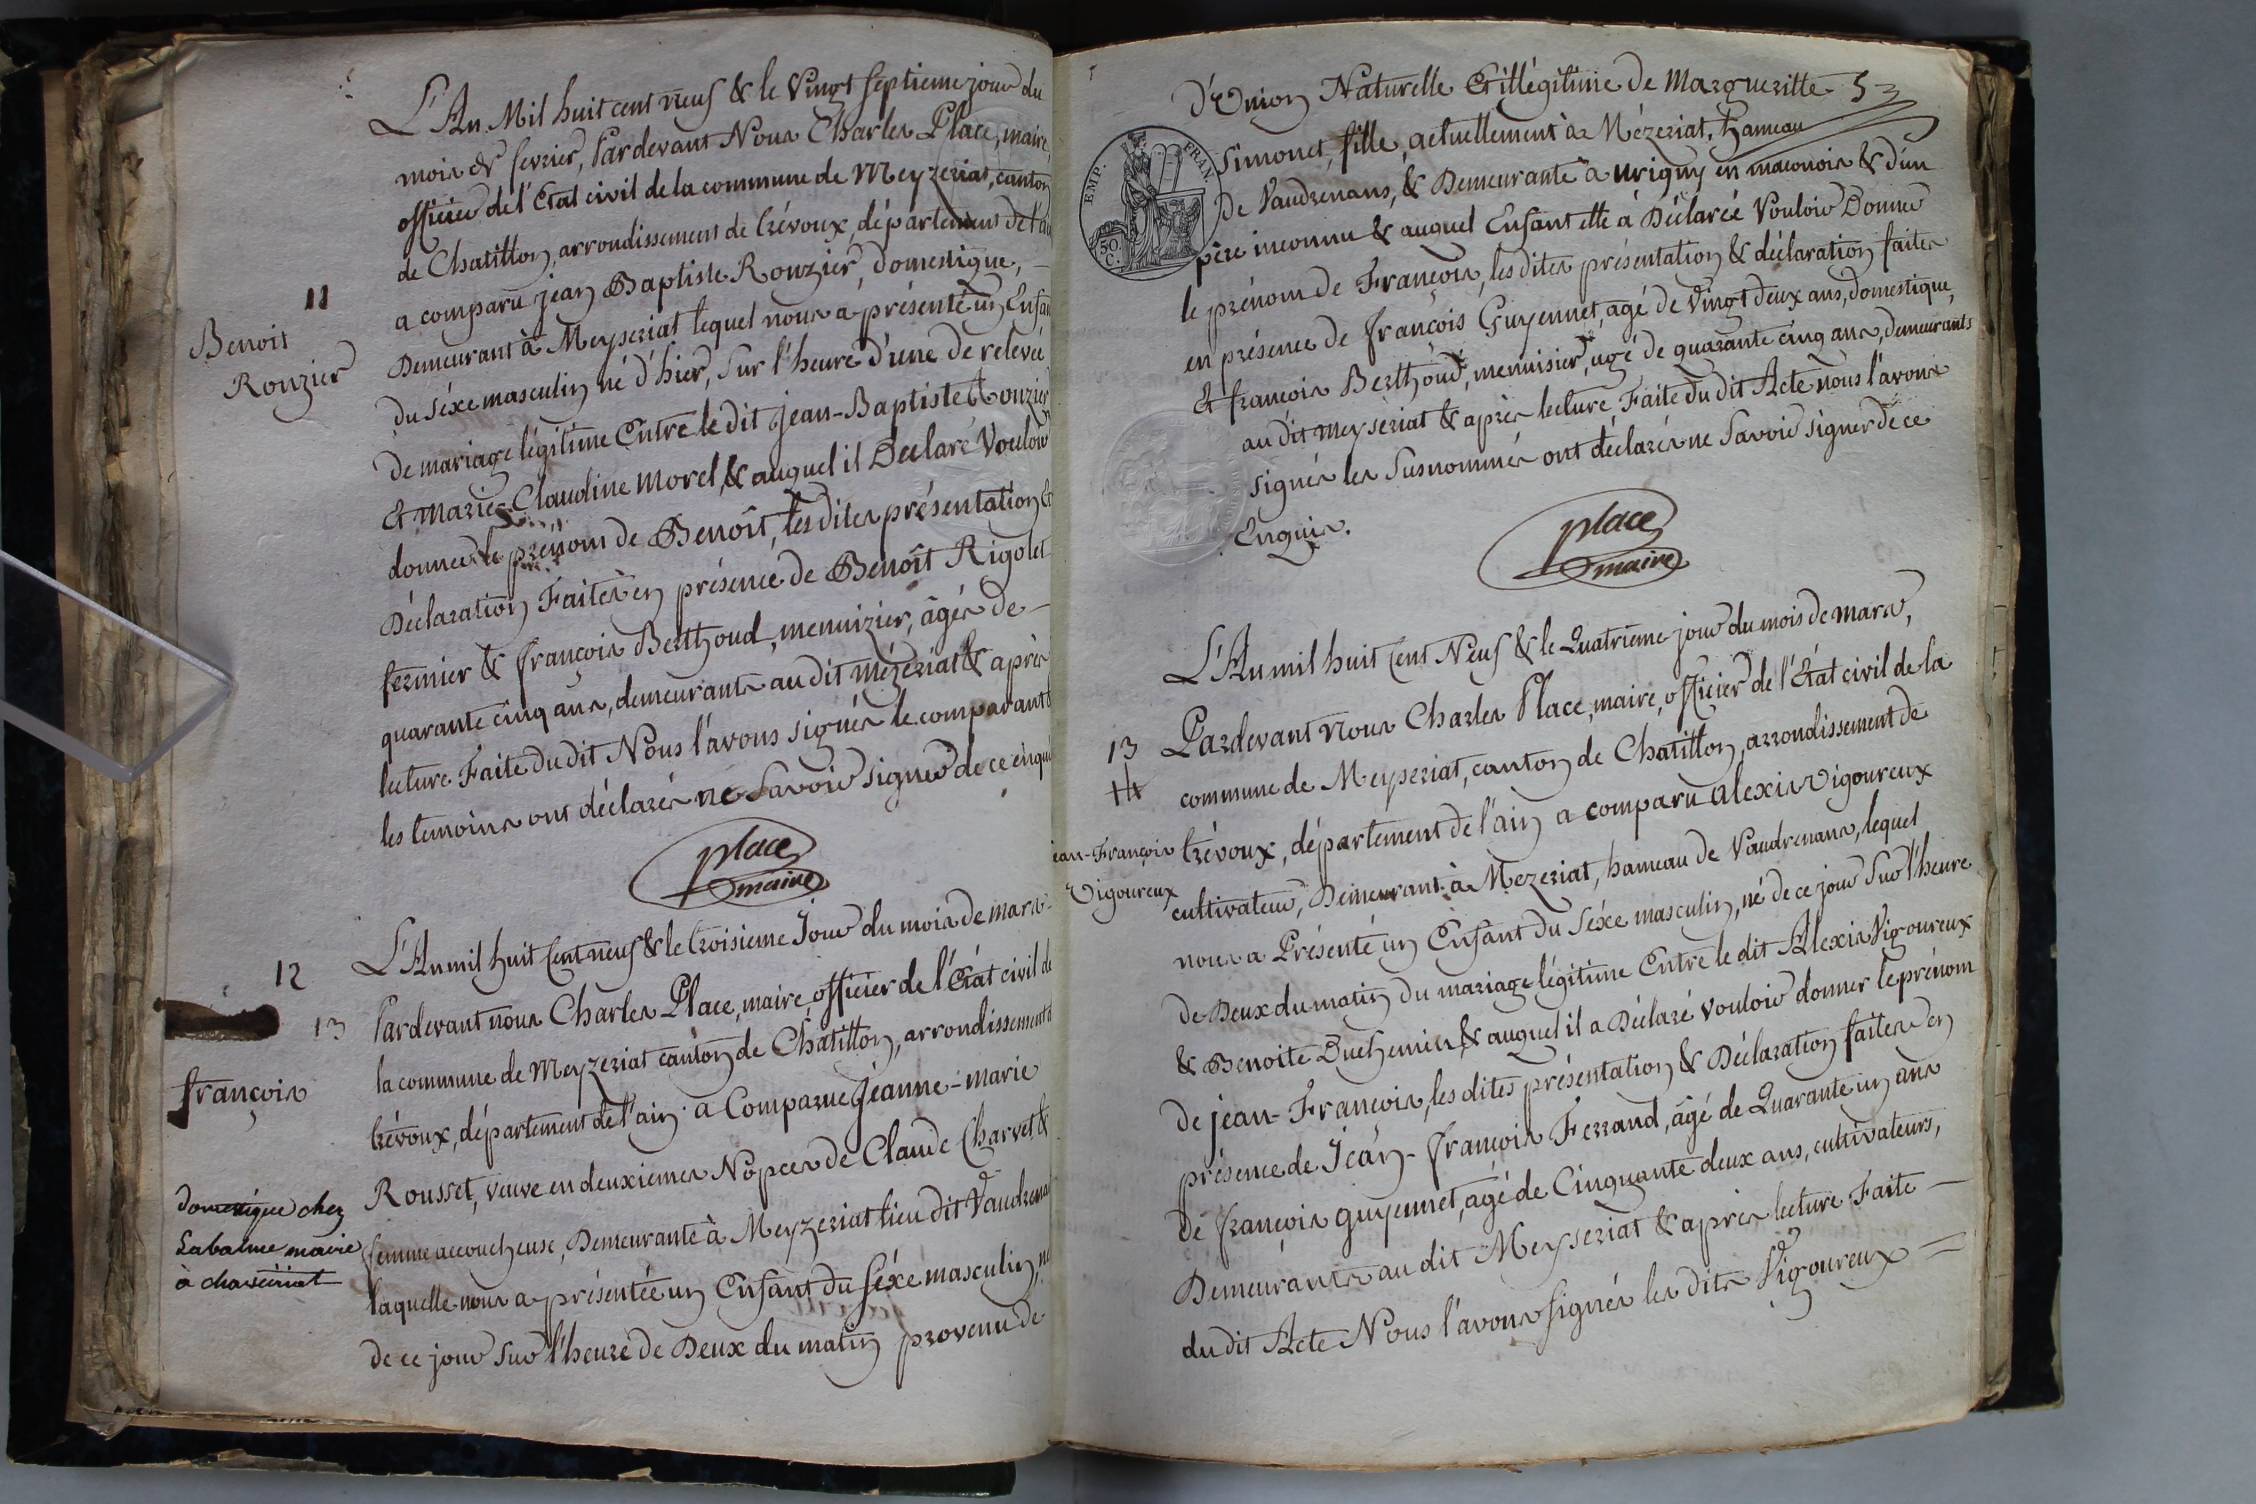 11
Benoit
Rouzier
L'An Mil huit cent neuf & le Vingt septieme jour du
mois de fevrier, Pardevant Nous Charles Place, maire,
officier de l'Etat civil de la commune de Meyzeriat, canton
de Chatillon, arrondissement de trévoux, département de l'ain
a comparu jean Baptiste Rouzier, domestique,
Demeurant à Meyseriat lequel nous a présenté un Enfan
du séxe masculin né d'hier, sur l'heure d'une de relevée
de mariage légitime Entre le dit jean-Baptiste Rouzier
Et marie-Claudine morel, & auquel il Declaré Vouloir
donner le prénom de Benoît, les dites présentation &
Déclaration Faites en présence de Benoît Rigolet
fermier & françois Berthoud, menuizier, âgés de
quarante cinq ans, demeurants au dit mézeriat & après
lecture Faite du dit Nous l'avons signés le comparant &
les temoins ont déclarés ne savoir signer de ce enqui
place
maire
12
13
françois
domestique chez
Labalme maire
à chaveiriat
L'An mil huit Cent neuf & le troisieme Jour du mois de mars
Pardevant nous Charles Place, maire officier de l'Etat civil de
la commune de Meyzeriat canton de Châtillon, arrondissement d
trévoux, département de l'ain a Comparue Jeanne-marie
Rousset, veuve en deuxiemes Nopces de Claude Charvet &
femme accoucheuse, Demeurante à Meyzeriat lieu dit Vaudrenas
laquelle nous a présentée un Enfant du séxe masculin, né
de ce jour sur l'heure de Deux du matin provenu de
d'Union Naturelle Et illégitime de Margueritte 53
Simonet, fille, actuellement à Mézeriat, hameau
De Vaudrenans, & Demeurante à Urigny en maconois & d'un
père inconnu & auquel Enfant elle à Déclarée Vouloir Donner
le prénom de François, les dites présentation & déclaration faites
en présence de françois Guyennet, agé de Vingt deux ans, domestique,
Et françois Berthoud, menuisier, agé de quarante cinq ans, demeurants
au dit meyseriat & après lecture Faite du dit Acte nous l'avons
signés les Susnommés ont déclarés ne Savoir signer de ce
Enquis.
EMP. FRAN.
50
C.
place
maire
13
jean-François
Vigoureux
L'An mil huit Cent Neuf & le Quatrième jour du mois de mars,
Pardevant nous Charles Place, maire, officier de l'Etat civil de la
commune de Meyseriat, canton de Chatillon, arrondissement de
trévoux, département de l'ain a comparu alexis Vigoureux
cultivateur, Demeurant à Mezeriat, hameau de Vaudrenans, lequel
nous a Présenté un Enfant du Séxe masculin, né de ce jour Sur l'heure
de Deux du matin du mariage légitime Entre le dit Alexis Vigoureux
& Benoite Duchemin & auquel il a Déclaré vouloir donner le prénom
de jean-François, les dites présentation & Déclaration faites en
présence de Jean-françois Ferrand, âgé de Quarante un ans
De françois guyennet, agé de Cinquante deux ans, cultivateurs,
Demeurants au dit Meyseriat & après lecture Faite
du dit Acte Nous l'avons signés les dits Vigoureux